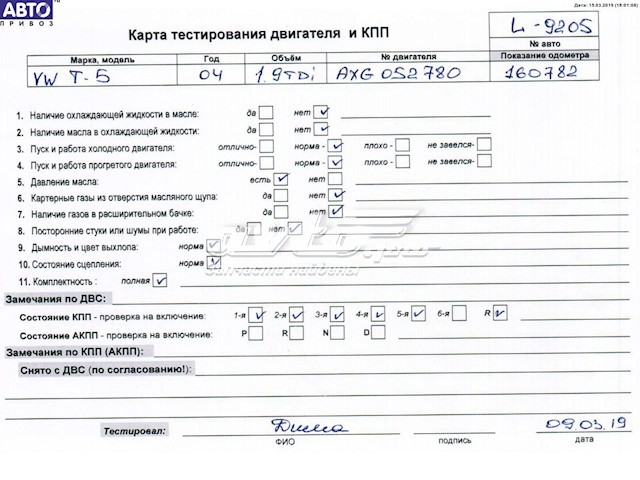 АВТО ТО
ПРИВОЗ
Дата: 15.03.2019 (18:01:08)
Карта тестирования двигателя и КПП
L-9205
№ авто
Марка, модель Год Объём № двигателя Показание одометра
VW T-5 04 1.9TDi AXG 052780 160782
1. Наличие охлаждающей жидкости в масле: да нет
2. Наличие масла в охлаждающей жидкости: да нет
3. Пуск и работа холодного двигателя: отлично- норма - плохо - не завелся-
4. Пуск и работа прогретого двигателя: отлично- норма - плохо - не завелся-
5. Давление масла: есть нет
6. Картерные газы из отверстия масляного щупа: да нет
7. Наличие газов в расширительном бачке: да нет
8. Посторонние стуки или шумы при работе: да нет
9. Дымность и цвет выхлопа: норма
10. Состояние сцепления: норма
запчасти найдены
11. Комплектность : полная
Замечания по ДВС:
Состояние КПП - проверка на включение: 1-я 2-я 3-я 4-я 5-я 6-я R
Состояние АКПП - проверка на включение: P R N D
Замечания по КПП (АКПП):
Снято с ДВС (по согласованию!):
Тестировал: Дима 09.03.19
ФИО подпись дата